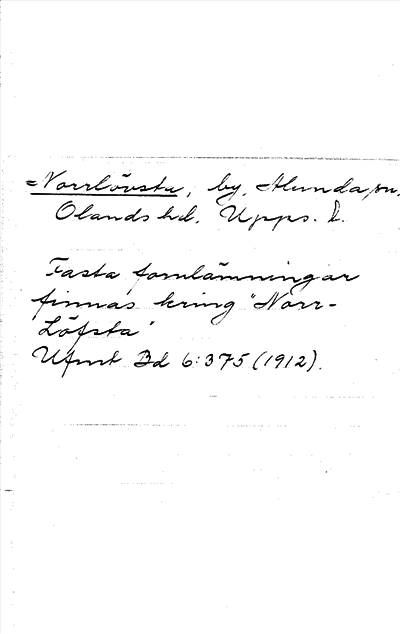 Norrlövsta, by, Alunda sn.
Olands hd. Upps. l.
Fasta fornlämningar
finnas kring "Norr-
Löfsta"
Ufmt Bd 6:375 (1912).